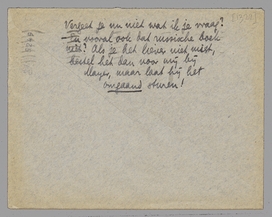 Vergeet je nu niet wat ik je vraag?
En vooral ook dat russische boek
Als je het liever niet mist,
bestel het dan voor mij bij
Mayer, maar laat hij het
omgaand sturen!